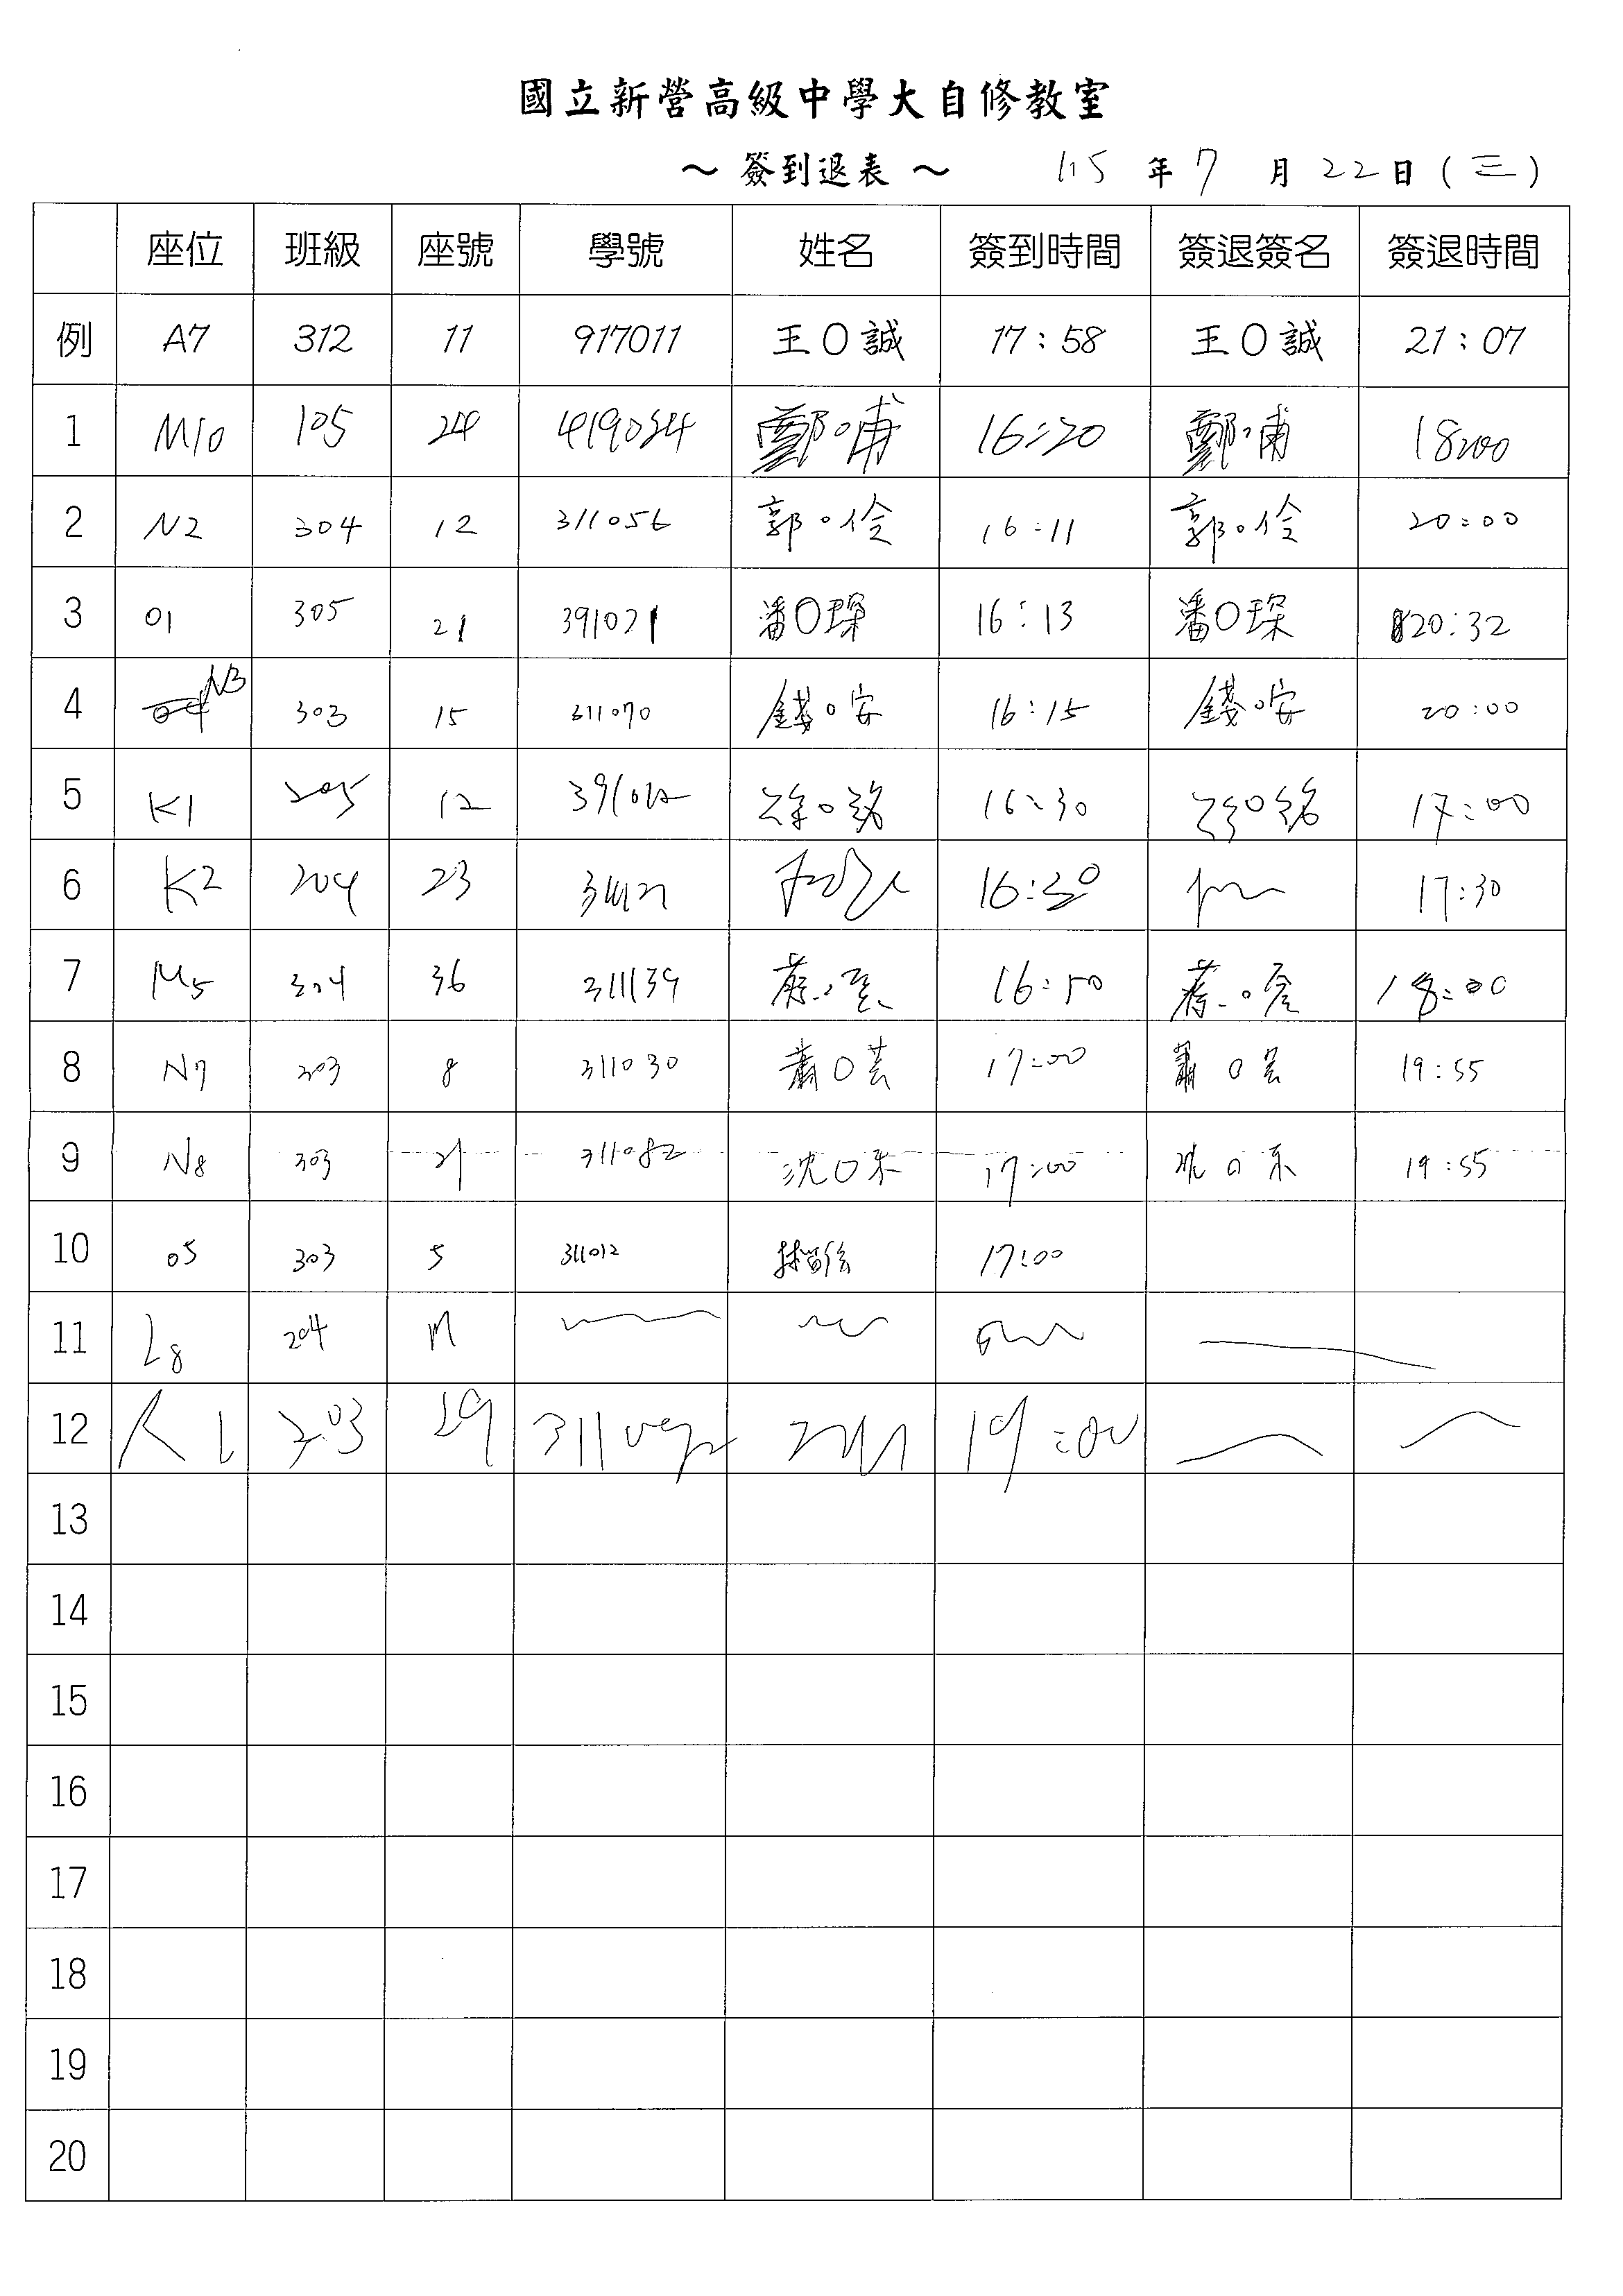 國立新營高級中學大自修教室
～ 簽到退表 ～ 115 年 7 月 22 日 ( 三 )
座位 班級 座號 學號 姓名 簽到時間 簽退簽名 簽退時間
例 A7 312 11 917011 王O誠 17:58 王O誠 21:07
1 M10 105 24 419024 鄭o甫 16:20 鄭o甫 18:00
2 N2 304 12 311056 郭o伶 16:11 郭o伶 20:00
3 01 305 21 391021 潘O琛 16:13 潘O琛 20:32
4 N3 303 15 311070 錢o安 16:15 錢o安 20:00
5 K1 205 12 391012 徐o銘 16:30 17:00
6 K2 204 23 16:30 17:30
7 M5 304 36 311139 蔡 16:50 蔡 18:00
8 N7 303 8 311030 蕭O芸 17:00 蕭O芸 19:55
9 N8 303 21 311082 沈O禾 17:00 沈O禾 19:55
10 05 303 5 311012 17:00
11 L8 204
12 303 29 19:00
13
14
15
16
17
18
19
20